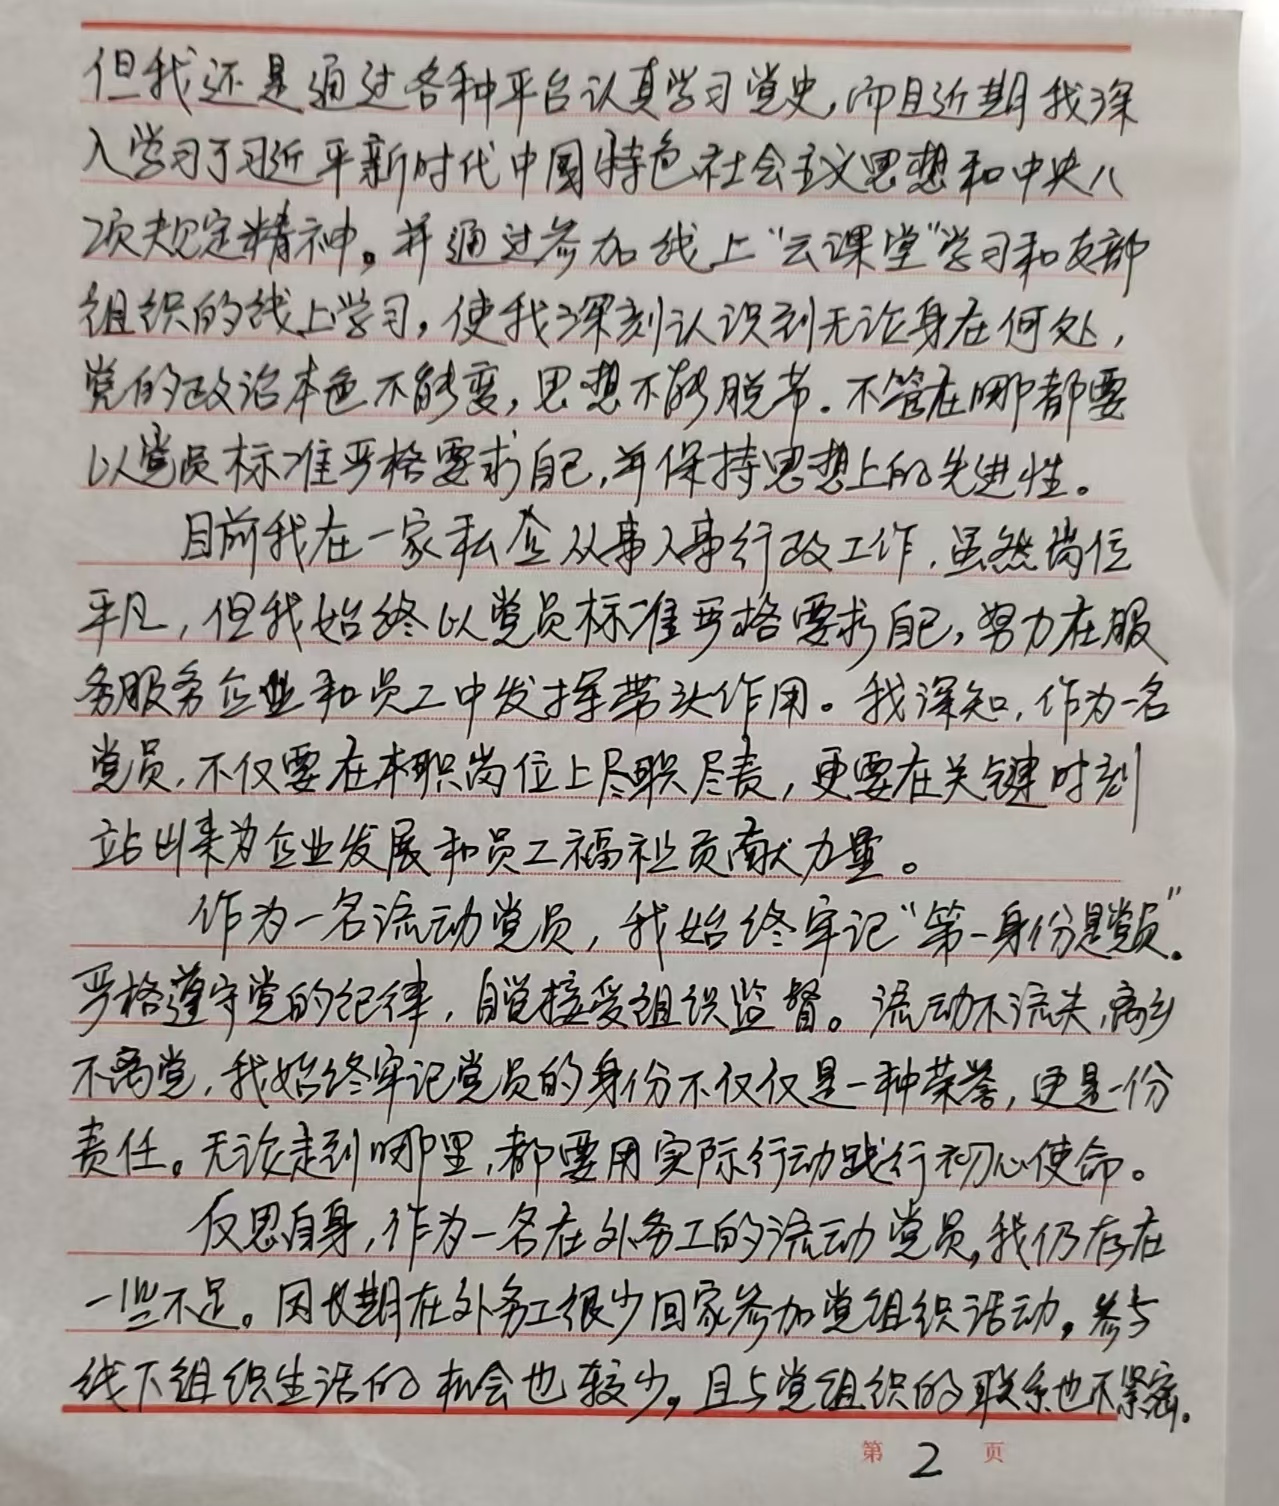 但我还是通过各种平台认真学习党史，而且近期我深
入学习了习近平新时代中国特色社会主义思想和中央八
项规定精神。并通过参加线上“云课堂”学习和支部
组织的线上学习，使我深刻认识到无论身在何处，
党的政治本色不能变，思想不能脱节。不管在哪都要
以党员标准严格要求自己，并保持思想上的先进性。
目前我在一家私企从事人事行政工作，虽然岗位
平凡，但我始终以党员标准严格要求自己，努力在服
务服务企业和员工中发挥带头作用。我深知，作为一名
党员，不仅要在本职岗位上尽职尽责，更要在关键时刻
站出来为企业发展和员工福祉贡献力量。
作为一名流动党员，我始终牢记“第一身份是党员”。
严格遵守党的纪律，自觉接受组织监督。流动不流失，离乡
不离党，我始终牢记党员的身份不仅仅是一种荣誉，更是一份
责任。无论走到哪里，都要用实际行动践行初心使命。
反思自身，作为一名在外务工的流动党员，我仍存在
一些不足。因长期在外务工很少回家参加党组织活动，参与
线下组织生活的机会也较少，且与党组织的联系也不紧密。
第 2 页